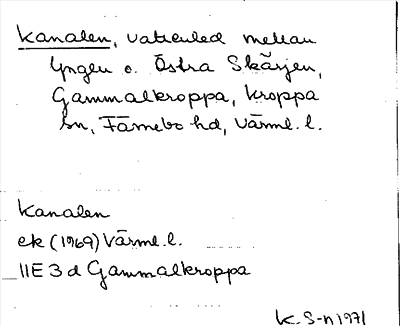 Kanalen, vattenled mellan
Yngen o. Östra Skärjen,
Gammalkroppa, Kroppa
sn, Färnebo hd, Värml. l.
Kanalen
ek (1969) Värml. l.
11E 3 d Gammalkroppa
K. S-n 1971